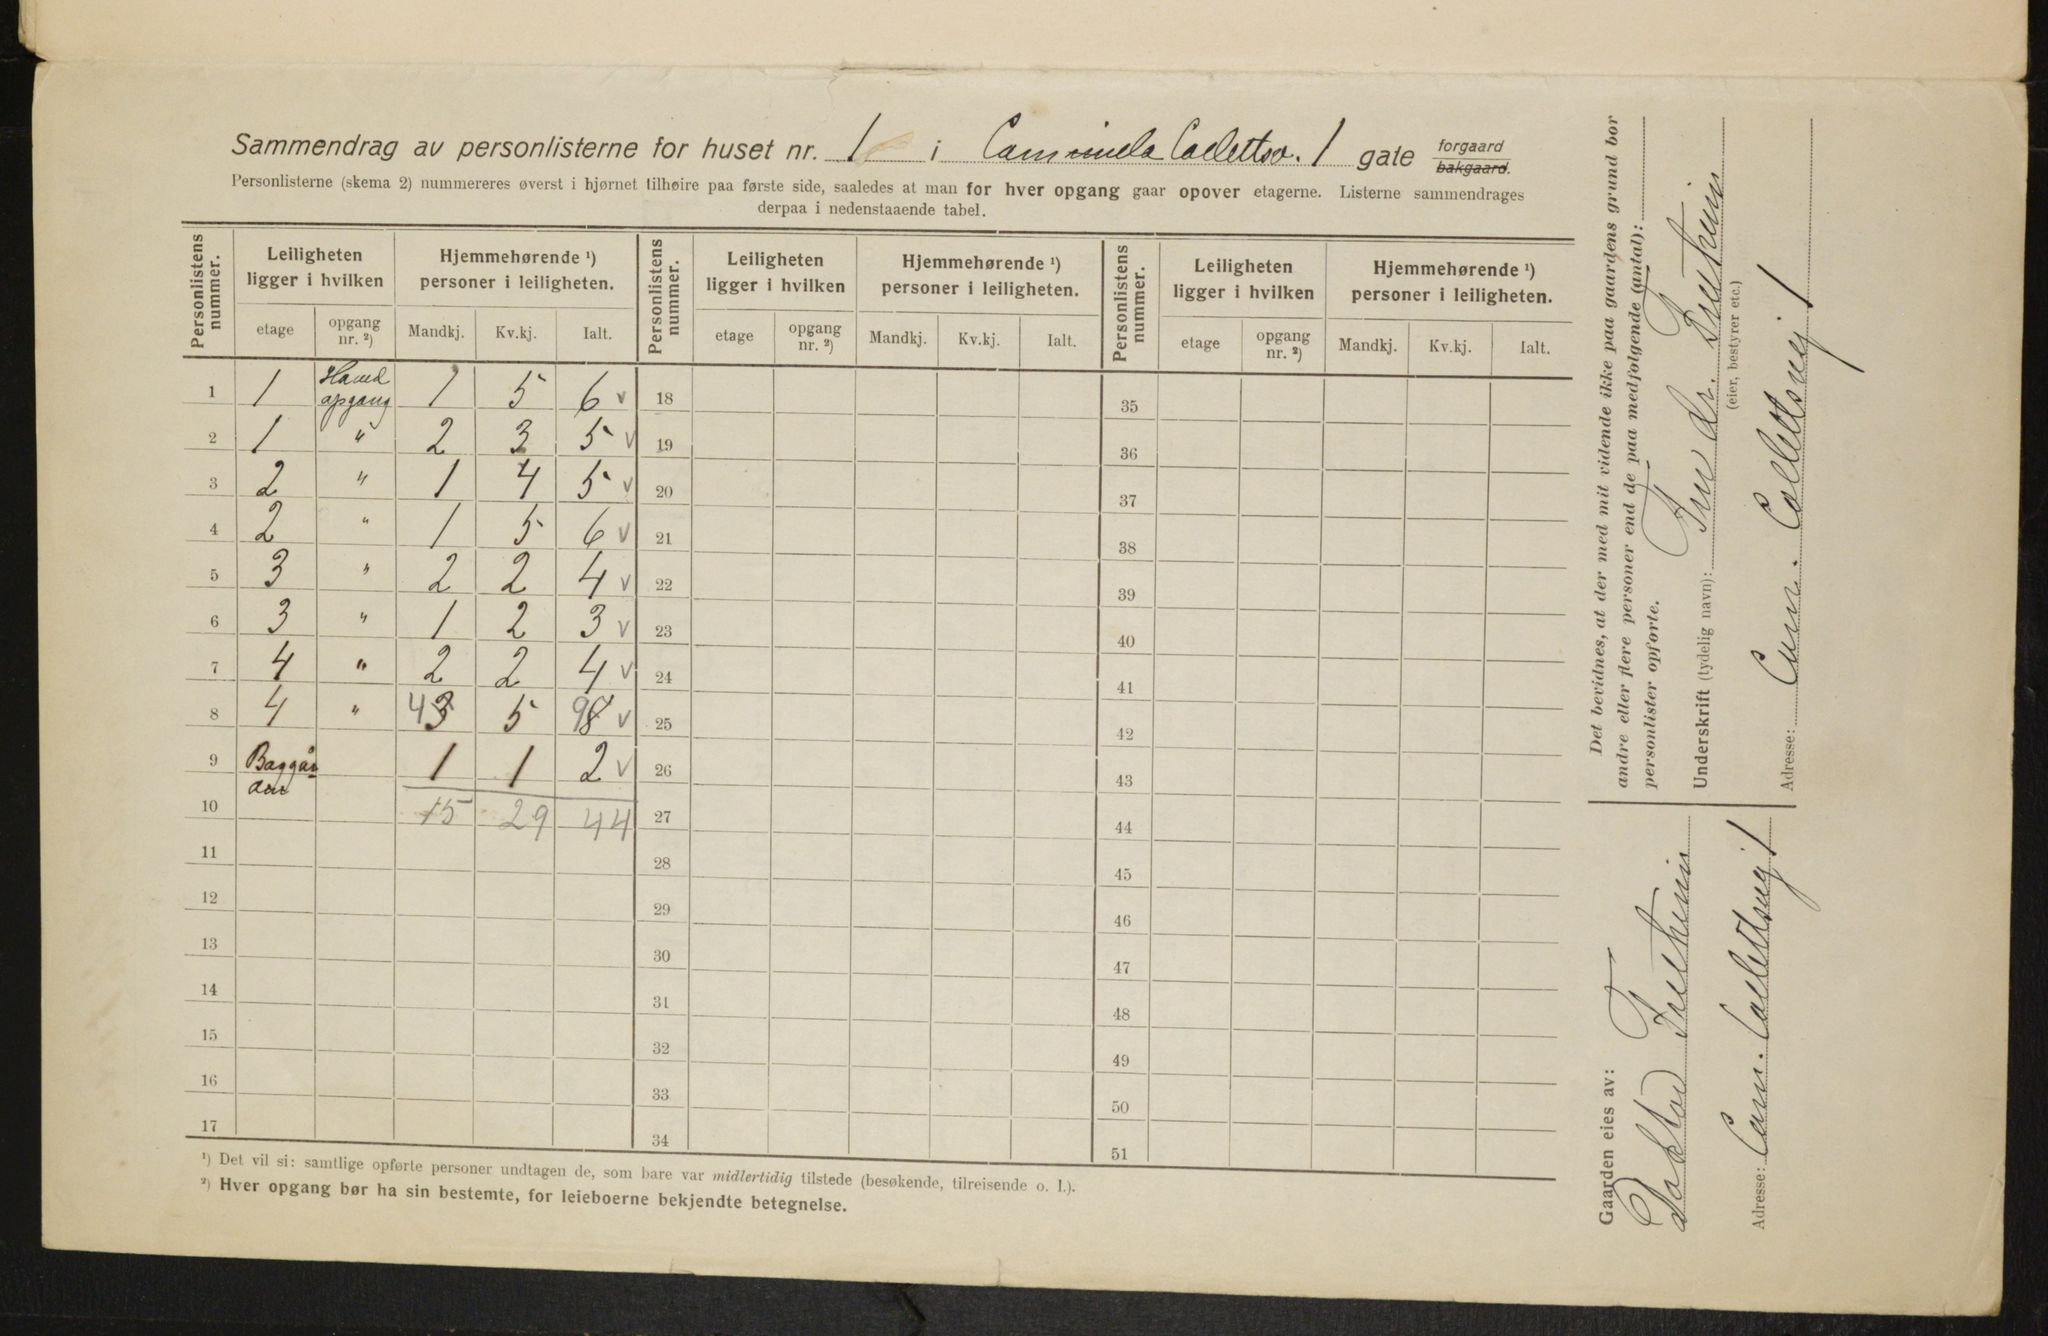 Sammendrag av personlisterne for huset nr. 1 i Cammmela Collettsv. 1 gate forgaard bakgaard.
Personlisterne (skema 2) nummereres øverst i hjørnet tilhøire paa første side, saaledes at man for hver opgang gaar opover etagerne. Listerne sammendrages
derpaa i nedenstaaende tabel.
Personlistens nummer. Leiligheten ligger i hvilken Hjemmehørende ¹) personer i leiligheten. Personlistens nummer. Leiligheten ligger i hvilken Hjemmehørende ¹) personer i leiligheten. Personlistens nummer. Leiligheten ligger i hvilken Hjemmehørende ¹) personer i leiligheten.
etage opgang nr. ²) Mandkj. Kv.kj. Ialt. etage opgang nr. ²) Mandkj. Kv.kj. Ialt. etage opgang nr. ²) Mandkj. Kv.kj. Ialt.
1 1 Hoved opgang 1 5 6 v 18 35
2 1 " 2 3 5 v 19 36
3 2 " 1 4 5 v 20 37
4 2 " 1 5 6 v 21 38
5 3 " 2 2 4 v 22 39
6 3 " 1 2 3 v 23 40
7 4 " 2 2 4 v 24 41
8 4 " 4 3 5 9 8 v 25 42
9 Baggår den 1 1 2 v 26 43
10 15 29 44 27 44
11 28 45
12 29 46
13 30 47
14 31 48
15 32 49
16 33 50
17 34 51
¹) Det vil si: samtlige opførte personer undtagen de, som bare var midlertidig tilstede (besøkende, tilreisende o. l.).
²) Hver opgang bør ha sin bestemte, for leieboerne bekjendte betegnelse.
Det bevidnes, at der med mit vidende ikke paa gaardens grund bor
andre eller flere personer end de paa medfølgende (antal):
personlister opførte.
Underskrift (tydelig navn): Fru dr.
(eier, bestyrer etc.)
Adresse: Cam. Collettsvej 1
Gaarden eies av:
Doktor
Adresse: Cam. Collettsvej 1